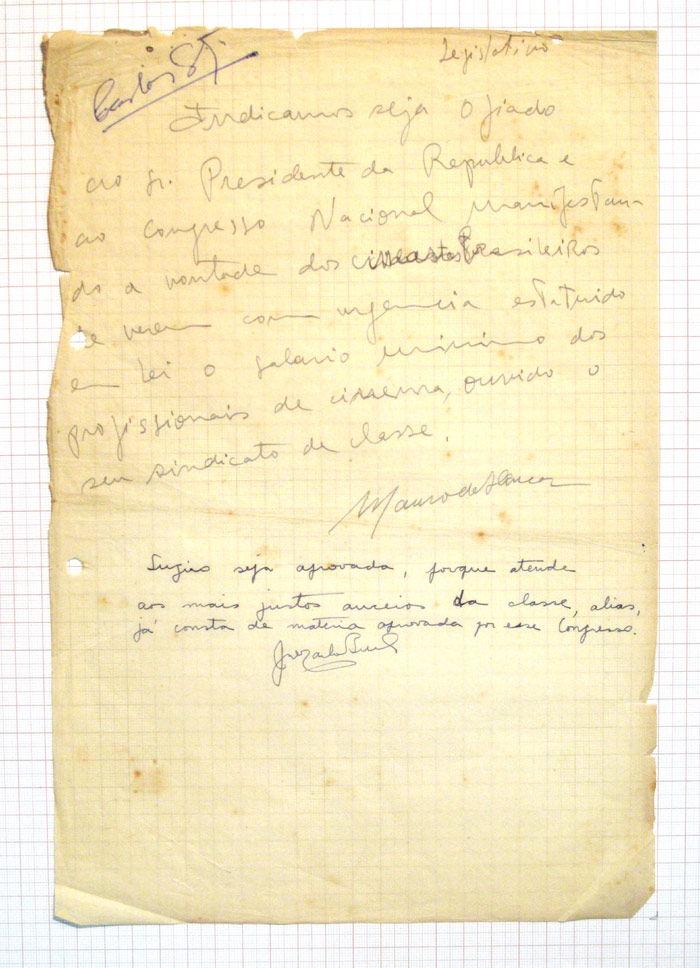 Legislativo
Carlos
Indicamos seja oficiado
ao sr. Presidente da Republica e
ao Congresso Nacional manifestan-
do a vontade dos cineastas brasileiros
de verem com urgencia estatuido
em lei o salario minimo dos
profissionais de cinema, ouvido o
seu sindicato de classe.
Mauro de Alencar
Sugiro seja aprovada, porque atende
aos mais justos anceios da classe, alias,
já consta de materia aprovada por esse Congresso.